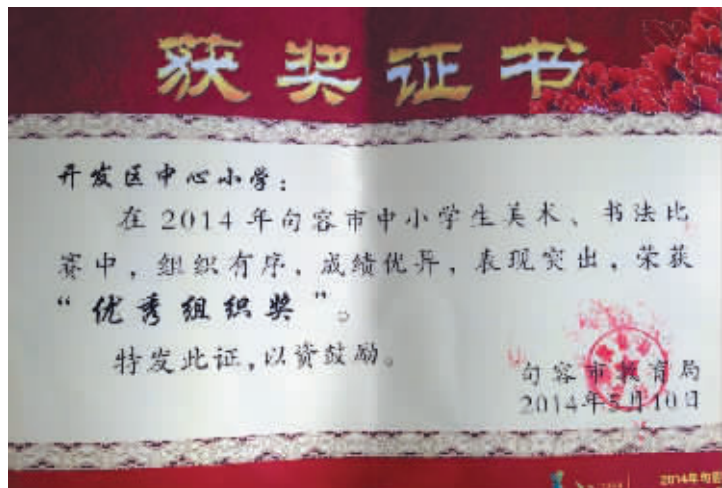 获奖证书
开发区中心小学：
在2014年句容市中小学生美术、书法比
赛中，组织有序，成绩优异，表现突出，荣获
“优秀组织奖”。
特发此证，以资鼓励。
句容市教育局
2014年5月10日
2014年句